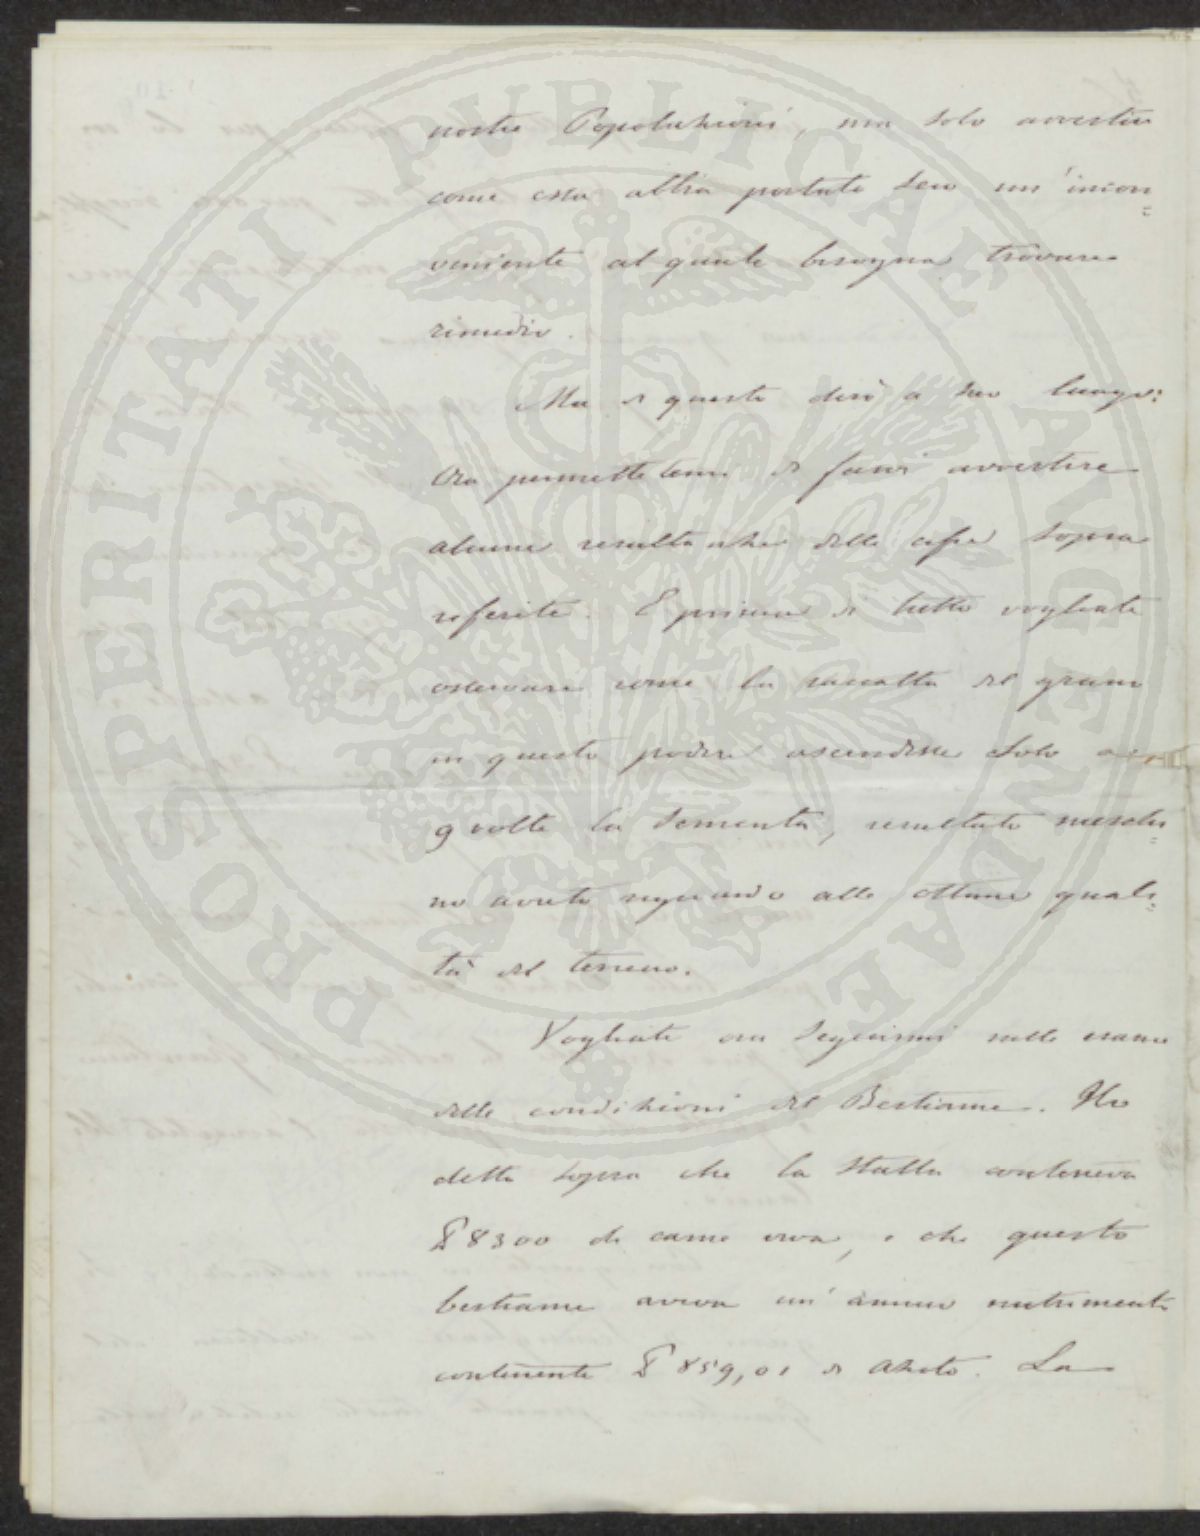 nostre Popolazioni, ma solo avvertire
come essa abbia portato seco un' incon=
veniente al quale bisogna trovare
rimedio.
Ma di questo dirò a suo luogo:
Ora permettetemi di farvi avvertire
alcune resultanze delle cifre sopra
riferite. E prima di tutto vogliate
osservare come la raccolta del grano
in questo podere ascendesse solo a
9 volte la sementa, resultato meschi=
no avuto riguardo alla ottima quali=
tà del terreno.
Vogliate ora seguirmi nello esame
delle condizioni del Bestiame. Ho
detto sopra che la stalla conteneva
℔ 8300 di carne viva, e che questo
bestiame aveva un' annuo nutrimento
contenente ℔ 859,01 di azoto. La
PROSPERITATI PVBLICAE AVGENDAE